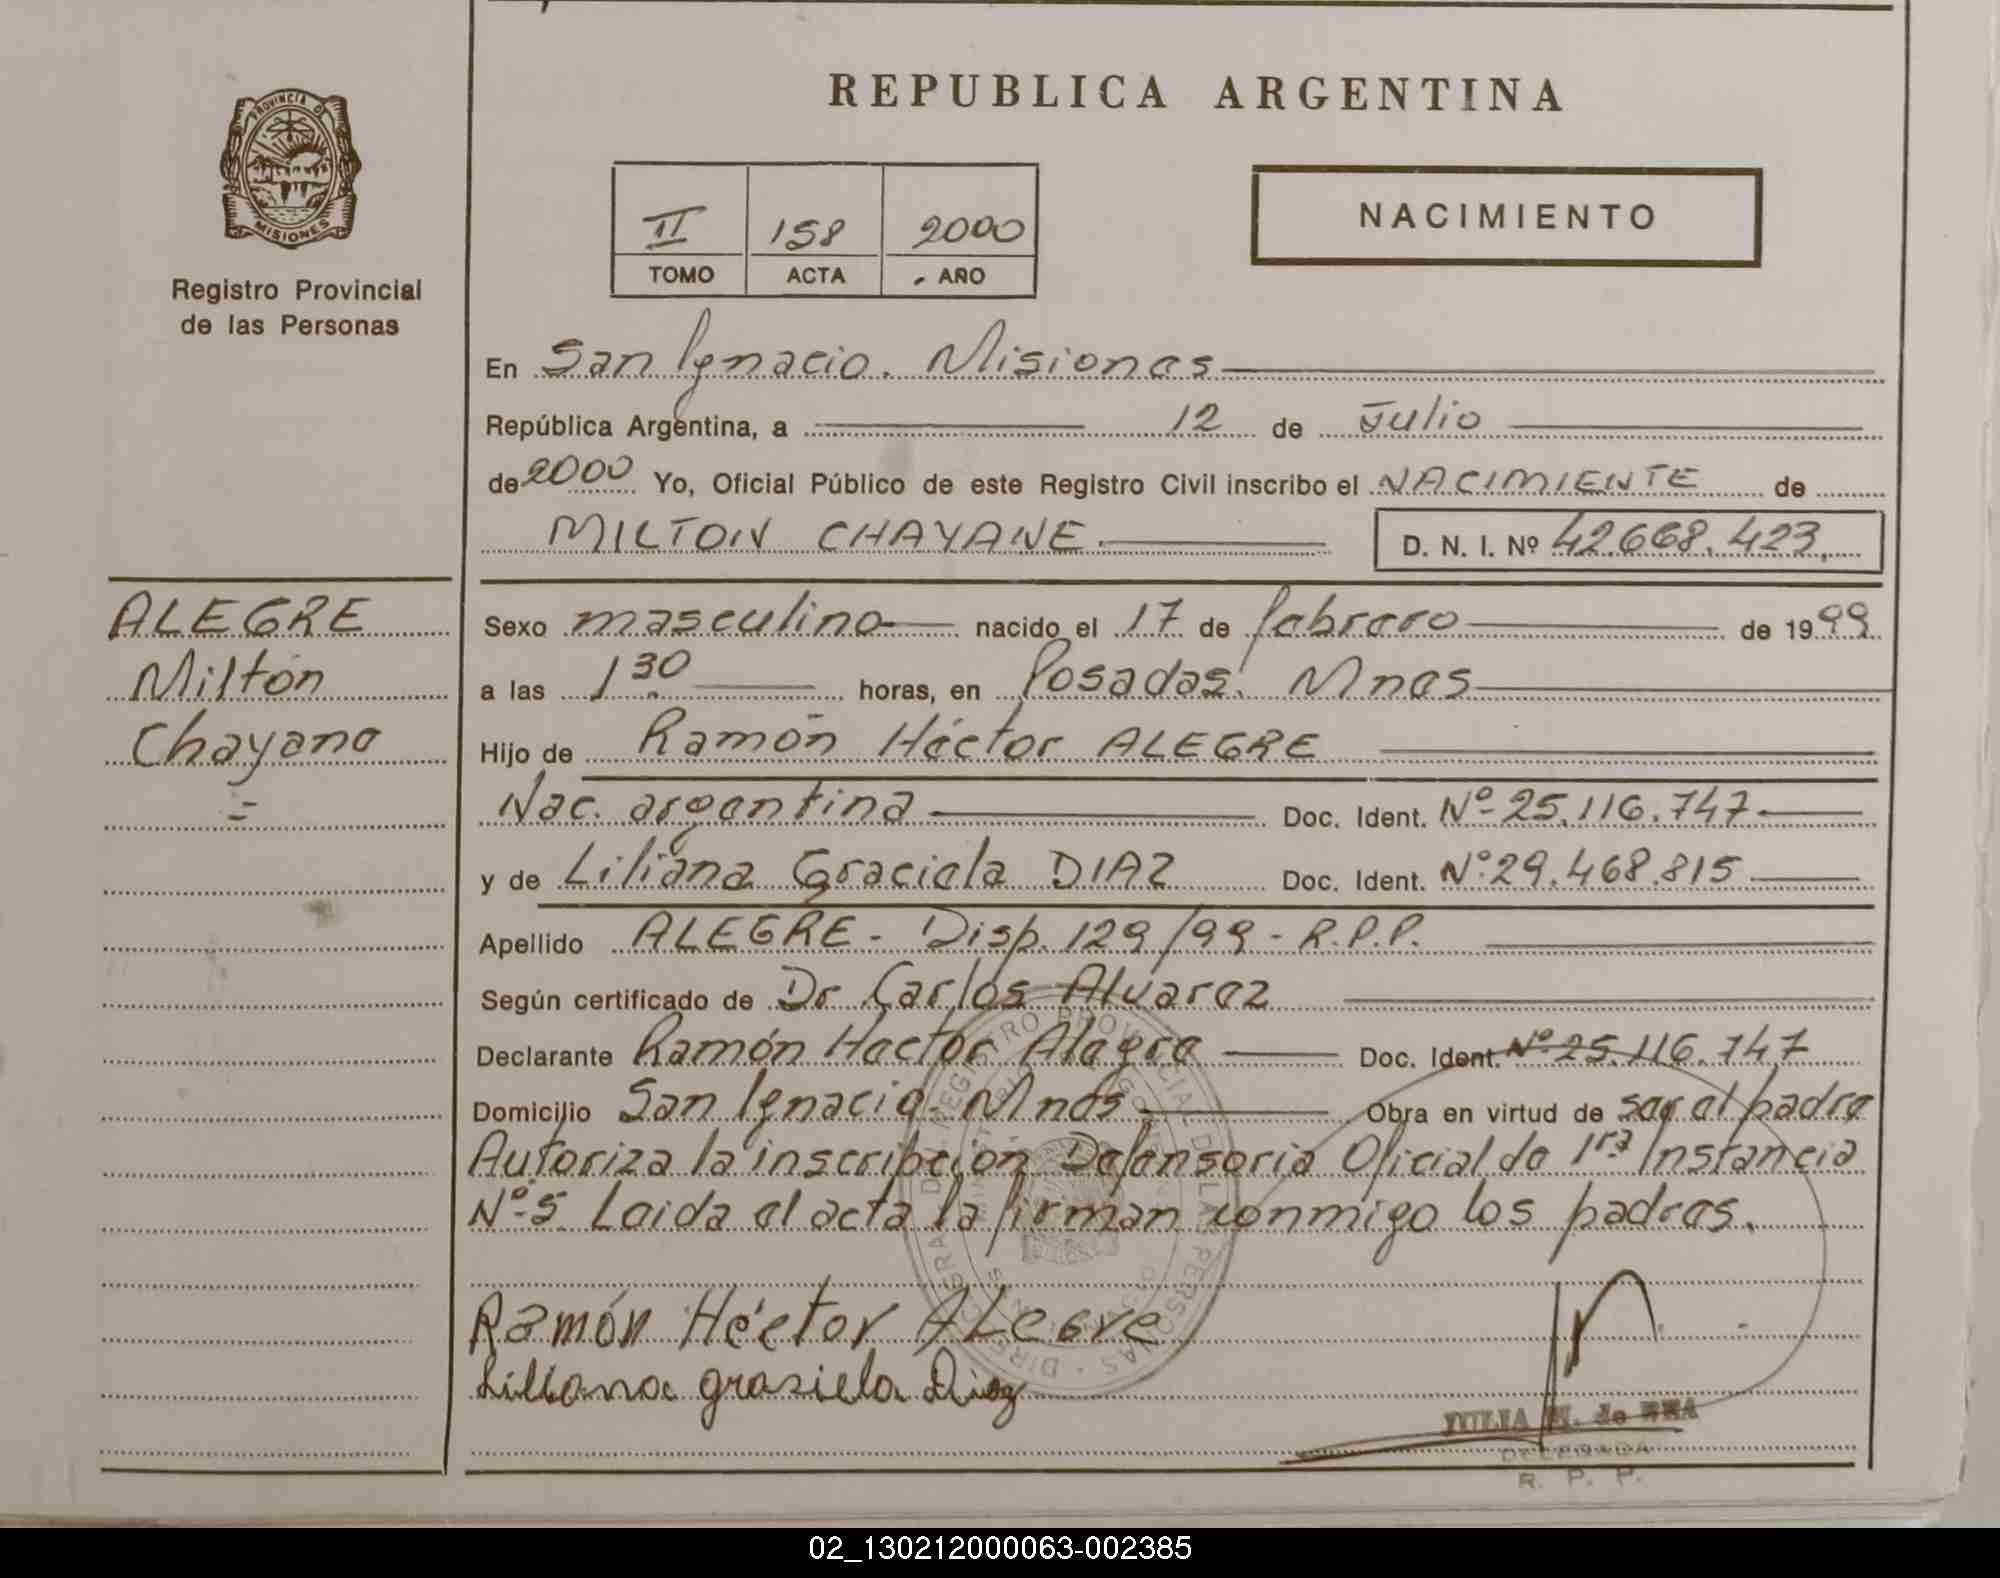 REPUBLICA ARGENTINA
PROVINCIA DE
MISIONES
Registro Provincial
de las Personas
II 158 2000
TOMO ACTA AÑO
NACIMIENTO
En San Ignacio. Misiones
República Argentina, a 12 de Julio
de 2000 Yo, Oficial Público de este Registro Civil inscribo el NACIMIENTE de
MILTON CHAYANE. D. N. I. Nº 42.668.423.
ALEGRE
Milton
Chayane
=
Sexo masculino nacido el 17 de febrero de 1999
a las 1 30 horas, en Posadas. Mnes
Hijo de Ramón Héctor ALEGRE
Nac. argentina Doc. Ident. Nº 25.116.747
y de Liliana Graciela DIAZ Doc. Ident. Nº 29.468.815
Apellido ALEGRE - Disp. 129/99 - R.P.P.
Según certificado de Dr Carlos Alvarez
Declarante Ramón Hector Alegre Doc. Ident. Nº 25.116.747
Domicilio San Ignacio - Mnes Obra en virtud de ser el padre
Autoriza la inscripción Defensoria Oficial de 1ra Instancia
Nº 5 Leida el acta la firman conmigo los padres.
Ramón Héctor ALegre
Liliana grasiela Diaz
JULIA de
DELEGADA
R. P. P.
02_130212000063-002385